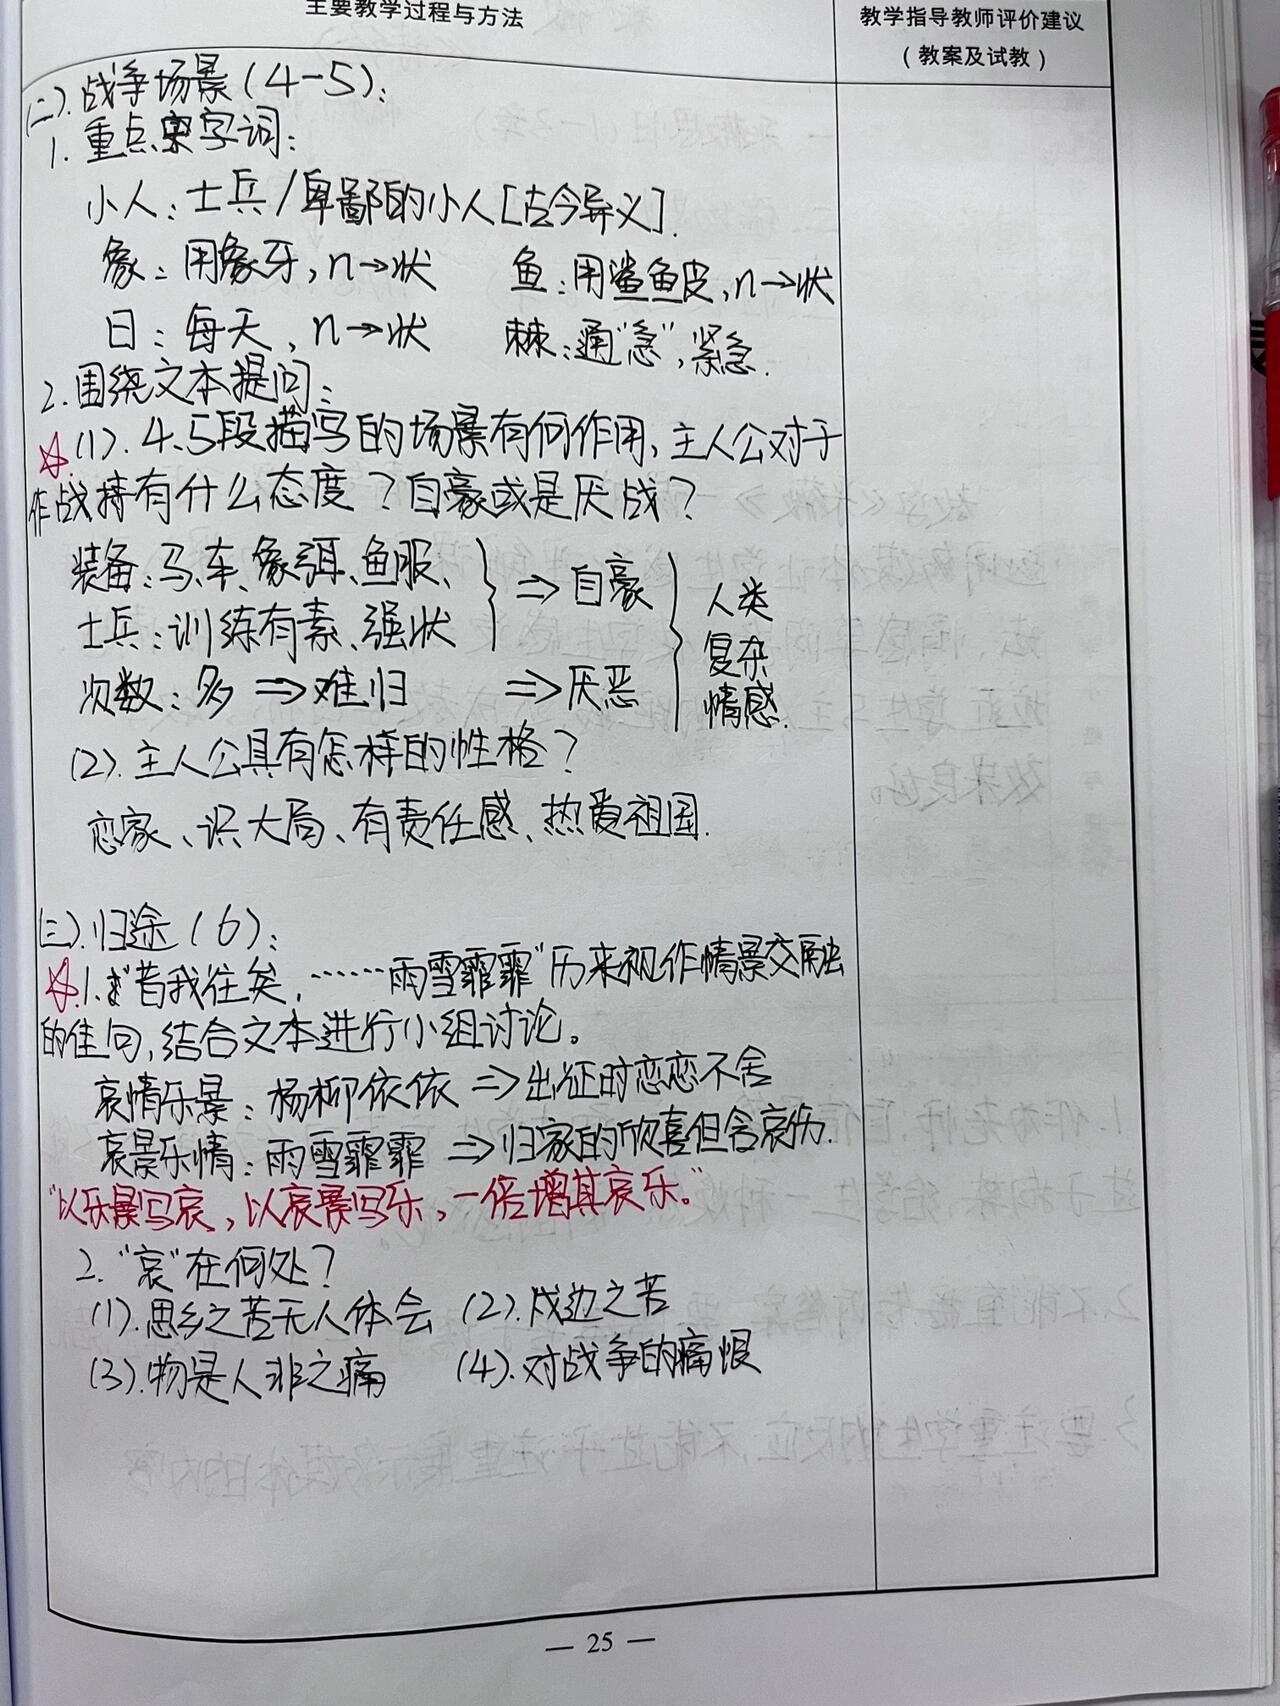 主要教学过程与方法
教学指导教师评价建议
（教案及试教）
(二).战争场景(4-5):
1.重点字词:
小人:士兵/卑鄙的小人[古今异义].
象:用象牙,n→状 鱼:用鲨鱼皮,n→状
日:每天,n→状 棘:通"急",紧急.
2.围绕文本提问:
☆.(1).4、5段描写的场景有何作用,主人公对于
作战持有什么态度?自豪或是厌战?
装备:马、车、象弭、鱼服、
士兵:训练有素、强状 ⇒自豪
次数:多⇒难归 ⇒厌恶
人类
复杂
情感.
(2).主人公具有怎样的性格?
恋家、识大局、有责任感、热爱祖国.
(三).归途(6):
☆.1."昔我往矣,……雨雪霏霏"历来视作情景交融
的佳句,结合文本进行小组讨论。
哀情乐景:杨柳依依⇒出征时恋恋不舍
哀景乐情:雨雪霏霏⇒归家的欣喜但含哀伤.
"以乐景写哀,以哀景写乐,一倍增其哀乐。"
2."哀"在何处?
(1).思乡之苦无人体会 (2).戍边之苦
(3).物是人非之痛 (4).对战争的痛恨
— 25 —